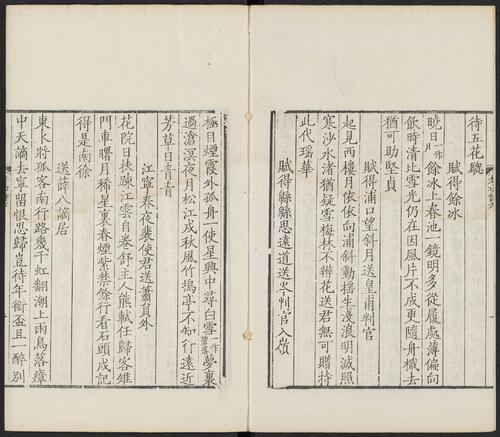 待五花驄
賦得餘冰
曉日一作月餘冰上春池一鏡明多從履處薄偏向
飲時清比雪光仍在因風片不成更隨舟檝去
猶可助堅貞
賦得浦口望斜月送皇甫判官
起見西樓月依依向浦斜動搖生淺浪明滅照
寒沙水渚猶疑雪梅林不辨花送君無可贈持
此代瑤華
賦得緜緜思遠道送岑判官入嶺
極目煙霞外孤舟一使星興中尋白雪一作碧落夢裏
過滄溟夜月松江戍秋風竹塢亭不知行遠近
芳草日青青
江寧春夜裴使君送蕭員外
花院日扶疎江雲自卷舒主人熊軾任歸客雉
門車曙月稀星裏春煙紫禁餘行看石頭戍記
得是南徐
送薛八謫居
東水將孤客南行路幾千虹翻潮上雨鳥落瘴
中天謫去寧留恨思歸豈待年銜盃且一醉別